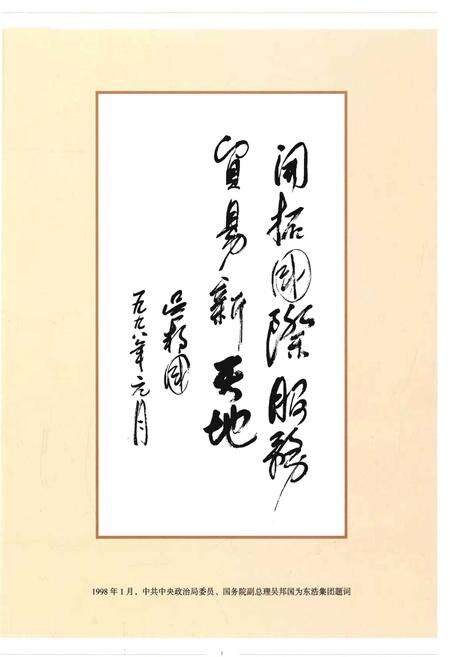 開拓國際服務
貿易新天地
吴邦國
一九九八年元月
1998 年 1 月，中共中央政治局委员、国务院副总理吴邦国为东浩集团题词
1